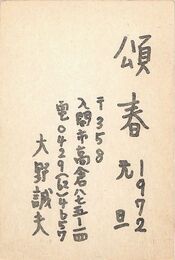 頌春
元旦
1972
〒358
入間市高倉八七五ー一四
電0429(62)4657
大野誠夫